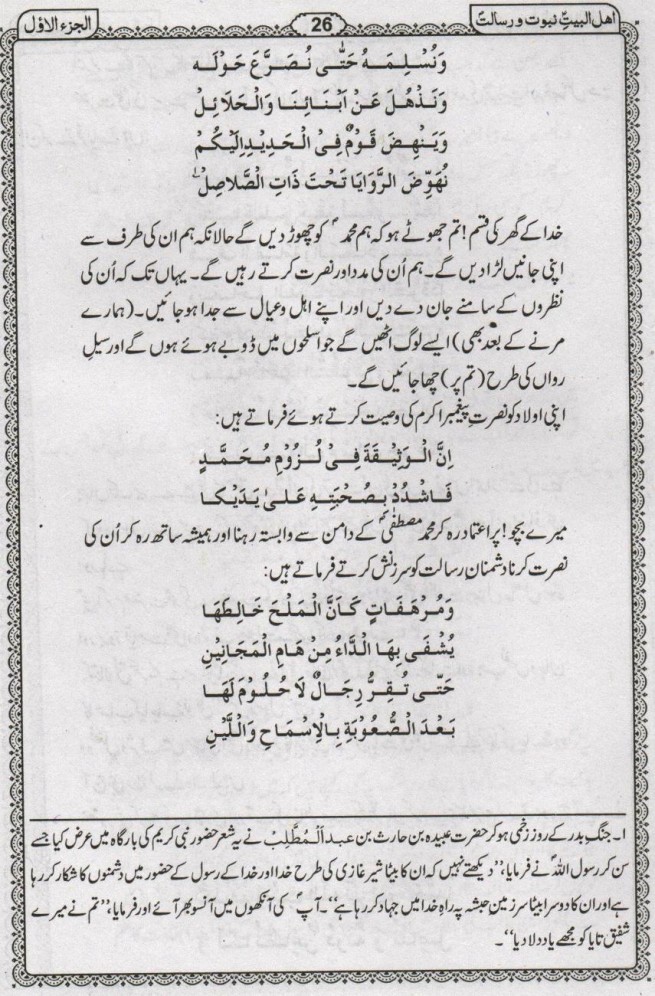 اهل البيتِ نبوت و رسالت
26
الجزء الاوّل
وَنُسْلِمَهُ حَتّٰى نُصَرَّعَ حَوْلَهٗ
وَنَذْهُلَ عَنْ اَبْنَائِنَا وَالْحَلَائِلْ
وَيَنْهِضَ قَوْمٌ فِى الْحَدِيْدِ اِلَيْكُمْ
نُهَوِّضَ الرَّوَايَا تَحْتَ ذَاتِ الصَّلَاصِلْ ۱؎
خدا کے گھر کی قسم! تم جھوٹے ہو کہ ہم محمدؐ کو چھوڑ دیں گے حالانکہ ہم ان کی طرف سے
اپنی جانیں لڑا دیں گے۔ ہم اُن کی مدد اور نصرت کرتے رہیں گے۔ یہاں تک کہ اُن کی
نظروں کے سامنے جان دے دیں اور اپنے اہل و عیال سے جدا ہو جائیں۔ (ہمارے
مرنے کے بعد بھی) ایسے لوگ اٹھیں گے جو اسلحوں میں ڈوبے ہوئے ہوں گے اور سیلِ
رواں کی طرح (تم پر) چھا جائیں گے۔
اپنی اولاد کو نصرتِ پیغمبر اکرم کی وصیت کرتے ہوئے فرماتے ہیں:
اِنَّ الْوَثِيْقَةَ فِى لُزُوْمِ مُحَمَّدٍ
فَاشْدُدْ بِصُحْبَتِهٖ عَلىٰ يَدَيْكَا
میرے بچو! پر اعتماد رہ کر محمد مصطفیٰؐ کے دامن سے وابستہ رہنا اور ہمیشہ ساتھ رہ کر اُن کی
نصرت کرنا دشمنانِ رسالت کو سرزنش کرتے فرماتے ہیں:
وَمُرْهَفَاتٍ كَاَنَّ الْمَلْحَ خَالِطَهَا
يُشْفَى بِهَا الدَّاءُ مِنْ هَامِ الْمَجَانِيْنِ
حَتّٰى تُقِرُّ رِجَالٌ لَا حُلُوْمَ لَهَا
بَعْدَ الصُّعُوْبَةِ بِالْاِسْمَاحِ وَاللَّيْنِ
۱۔ جنگِ بدر کے روز زخمی ہو کر حضرت عبیدہ بن حارث بن عبدالمُطَّلِب نے یہ شعر حضور نبی کریم کی بارگاہ میں عرض کیا جسے
سن کر رسول اللہؐ نے فرمایا، ”دیکھتے نہیں کہ ان کا بیٹا شیرِ غازی کی طرح خدا اور خدا کے رسول کے حضور میں دشمنوں کا شکار کر رہا
ہے اور ان کا دوسرا بیٹا سرزمین حبشہ پہ راہِ خدا میں جہاد کر رہا ہے“۔ آپؐ کی آنکھوں میں آنسو بھر آئے اور فرمایا، ”تم نے میرے
شفیق تایا کو مجھے یاد دلا دیا“۔